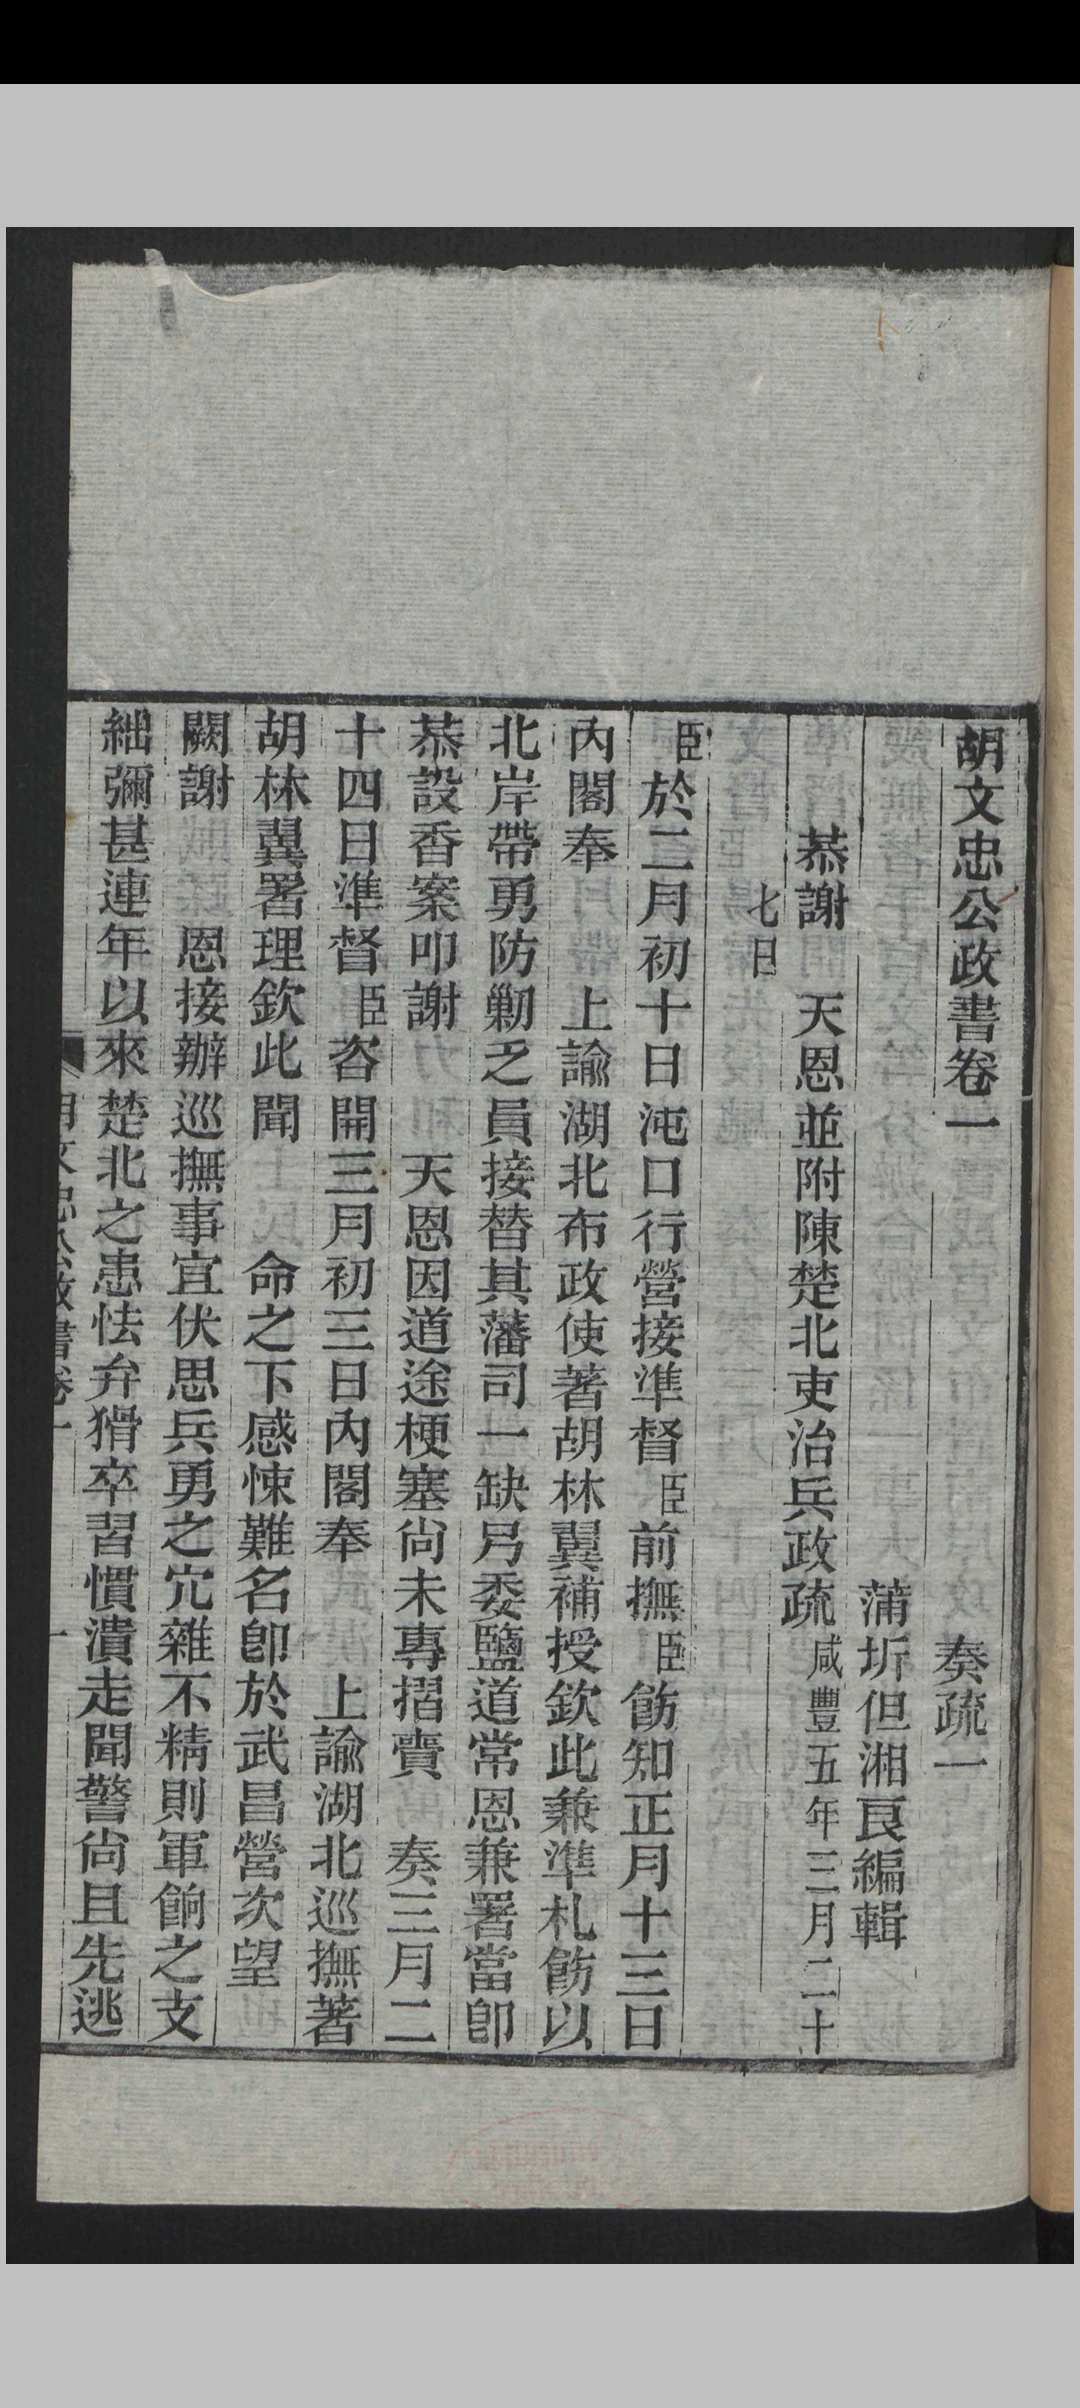 胡文忠公政書卷一
奏疏一
蒲圻但湘良編輯
恭謝 天恩並附陳楚北吏治兵政疏 咸豐五年三月二十
七日
臣於二月初十日沌口行營接準督臣前撫臣飭知正月十三日
內閣奉 上諭湖北布政使著胡林翼補授欽此兼準札飭以
北岸帶勇防勦乏員接替其藩司一缺另委鹽道常恩兼署當卽
恭設香案叩謝 天恩因道途梗塞尚未專摺賷 奏三月二
十四日準督臣咨開三月初三日內閣奉 上諭湖北巡撫著
胡林翼署理欽此聞 命之下感悚難名卽於武昌營次望
闕謝 恩接辦巡撫事宜伏思兵勇之宂雜不精則軍餉之支
絀彌甚連年以來楚北之患怯弁猾卒習慣潰走聞警尚且先逃
胡文忠公政書卷一 一